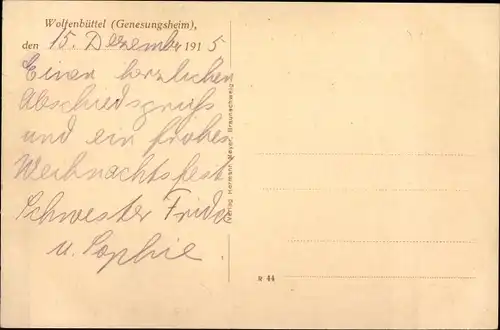 Wolfenbüttel (Genesungsheim),
den 15. Dezember 1915
Einen herzlichen
Abschiedsgruß
und ein frohes
Weihnachtsfest
Schwester Frida
u. Sophie.
Verlag Hermann Meyer, Braunschweig
R 44